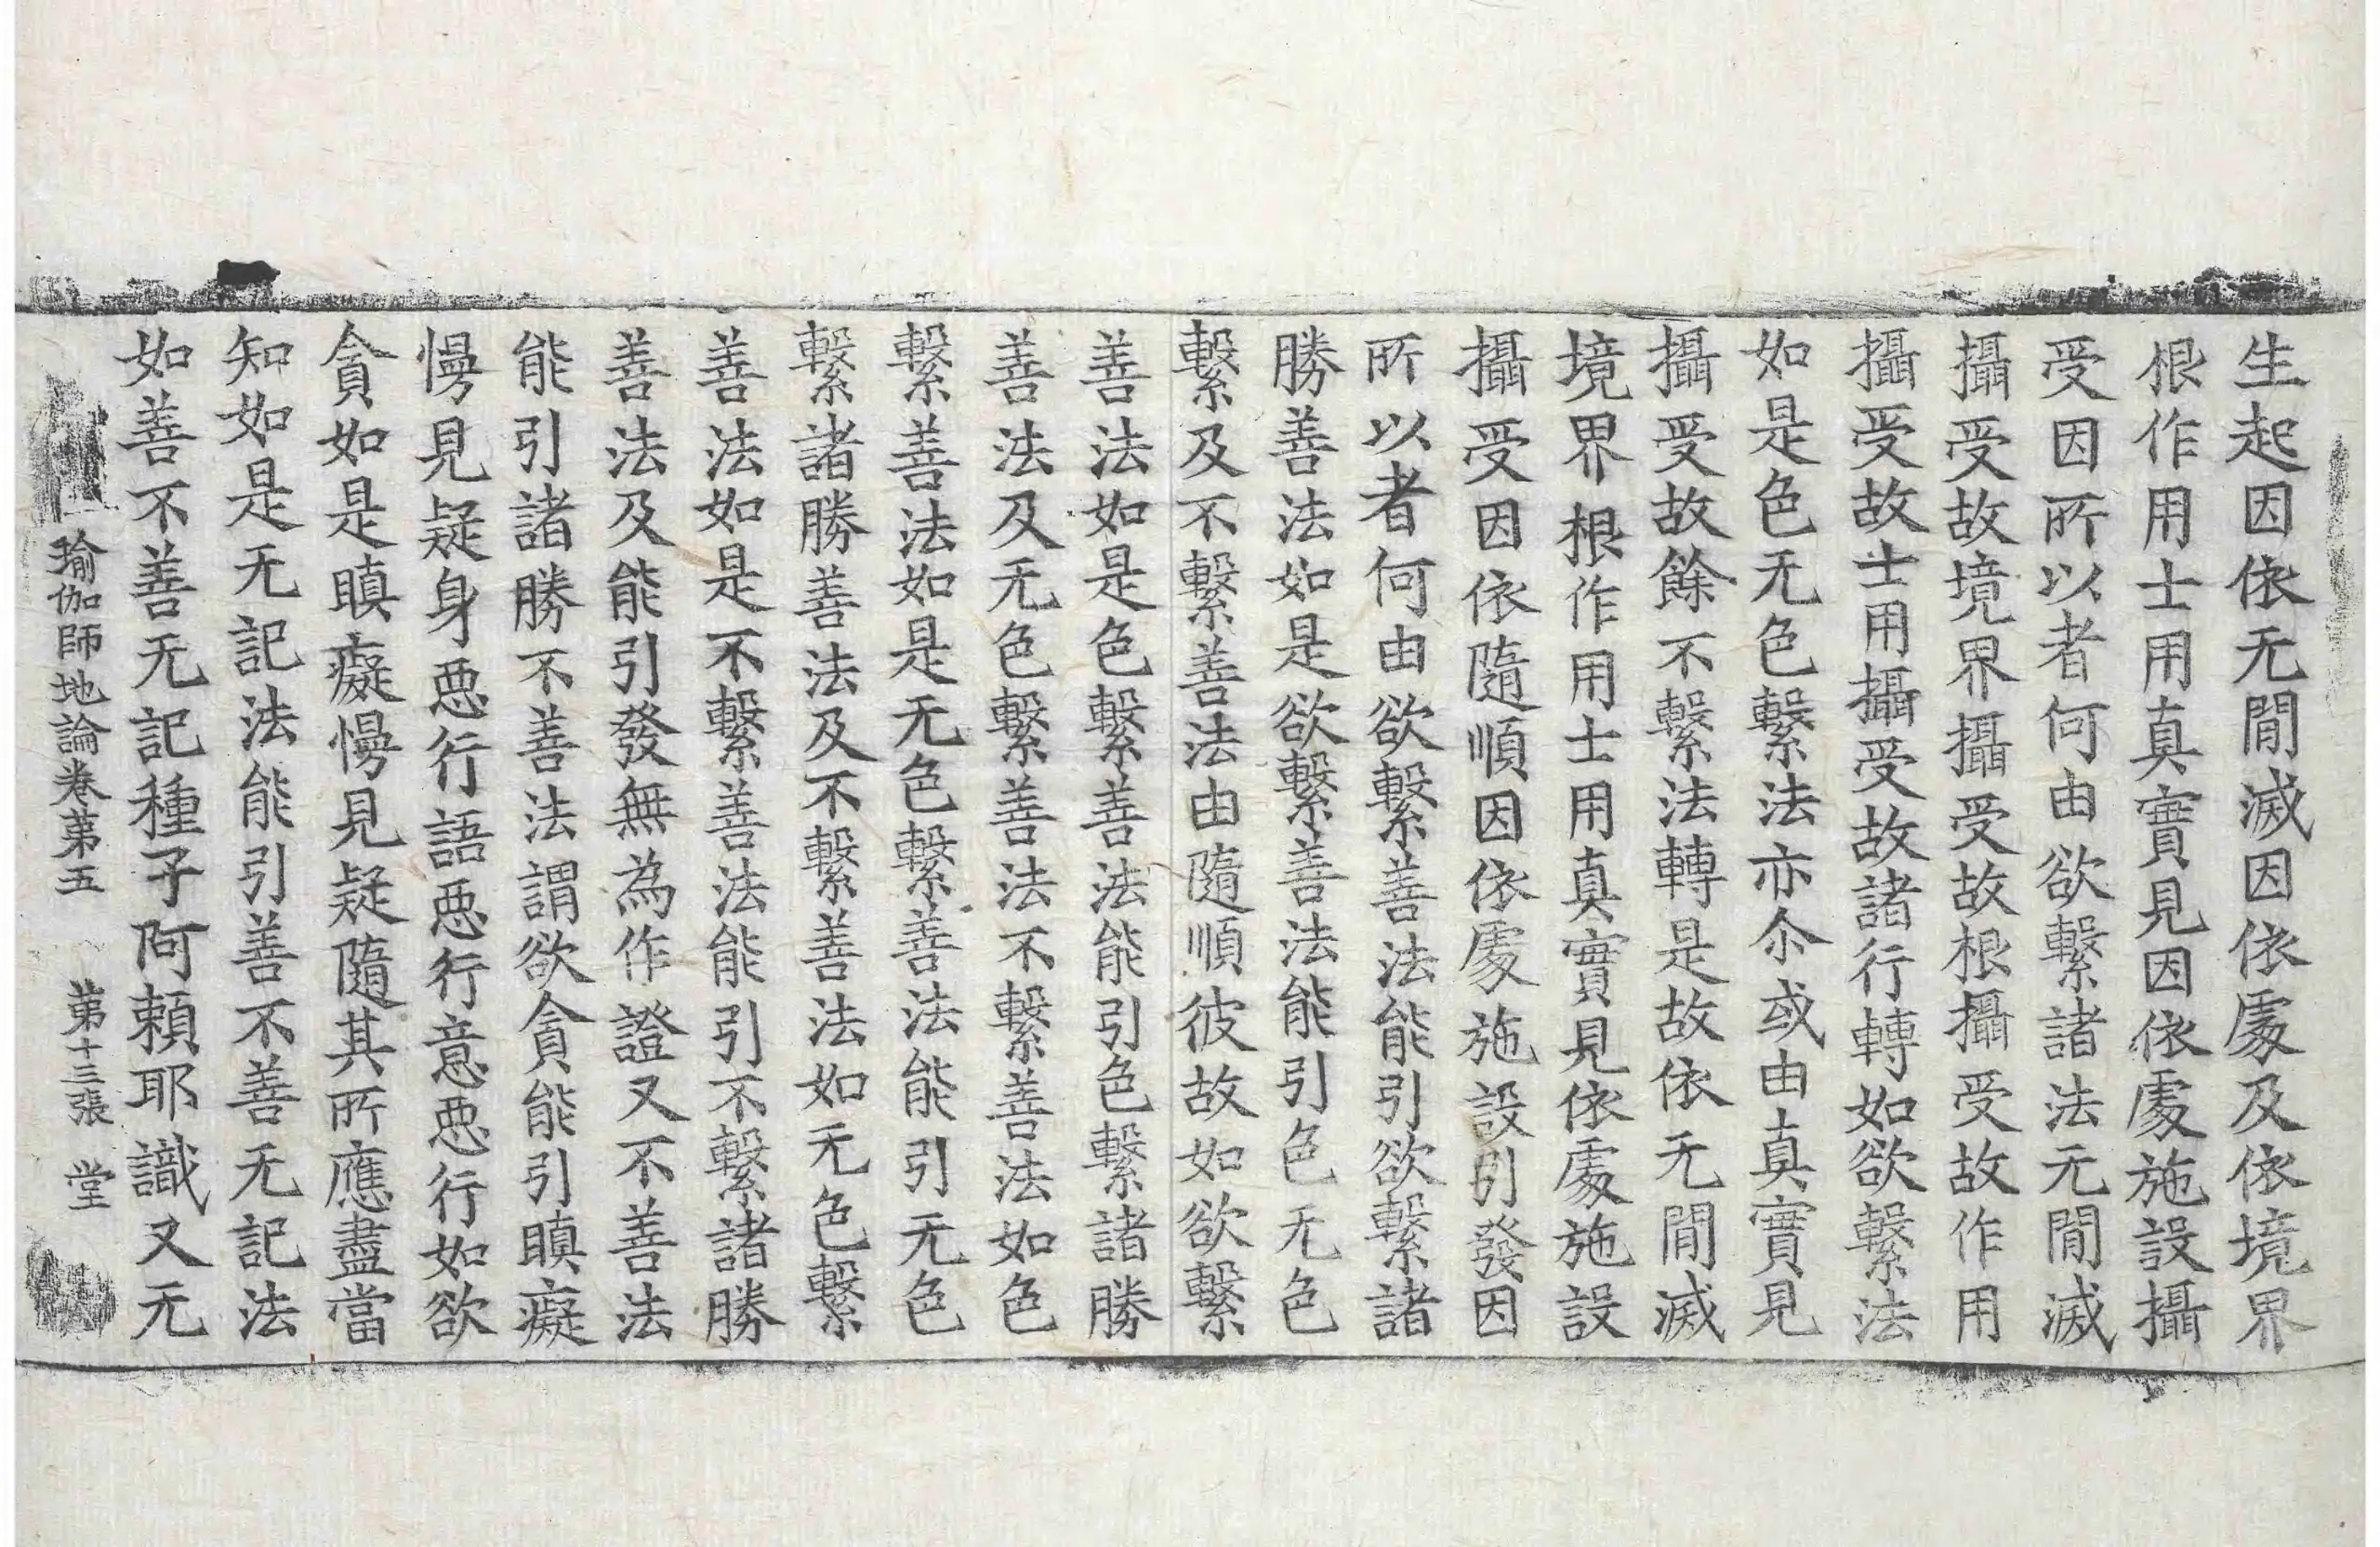 生起因依无閒滅因依處及依境界
根作用士用真實見因依處施設攝
受因所以者何由欲繫諸法无閒滅
攝受故境界攝受故根攝受故作用
攝受故士用攝受故諸行轉如欲繫法
如是色无色繫法亦尒或由真實見
攝受故餘不繫法轉是故依无閒滅
境界根作用士用真實見依處施設
攝受因依隨順因依處施設引發因
所以者何由欲繫善法能引欲繫諸
勝善法如是欲繫善法能引色无色
繫及不繫善法由隨順彼故如欲繫
善法如是色繫善法能引色繫諸勝
善法及无色繫善法不繫善法如色
繫善法如是无色繫善法能引无色
繫諸勝善法及不繫善法如无色繫
善法如是不繫善法能引不繫諸勝
善法及能引發無為作證又不善法
能引諸勝不善法謂欲貪能引瞋癡
慢見疑身惡行語惡行意惡行如欲
貪如是瞋癡慢見疑隨其所應盡當
知如是无記法能引善不善无記法
如善不善无記種子阿賴耶識又无
瑜伽師地論卷苐五　苐十三張　堂